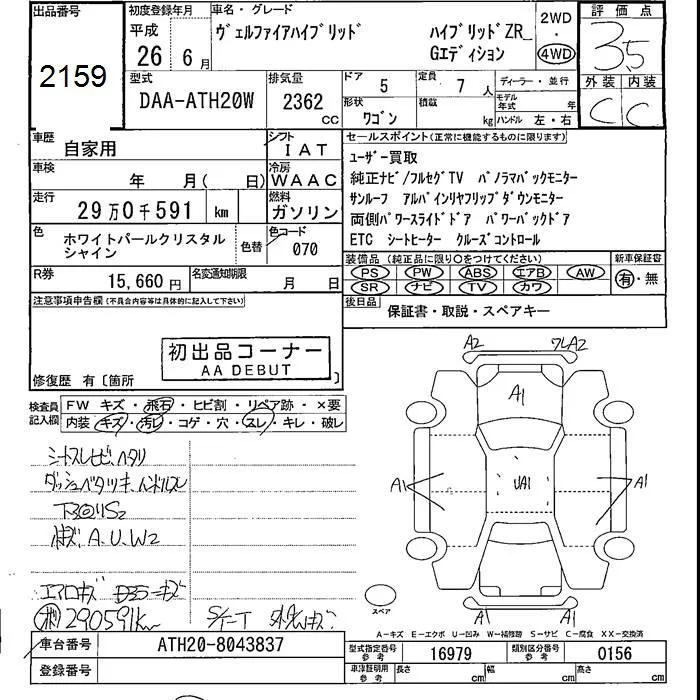 出品番号 初度登録年月 車名・グレード 評価点
平成 ヴェルファイアハイブリッド ハイブリッドZR_ 2WD 3.5
26 6月 Gエディション 4WD
2159
型式 排気量 ドア 5 定員 7人 ディーラー・並行 外装 内装
DAA-ATH20W 2362 CC 形状 ワゴン 積載 kg モデル年式 年 ハンドル 左・右 C C
車歴 自家用 シフト IAT セールスポイント(正常に機能するものに限ります)
車検 年 月( 日) 冷房 WAAC ユーザー買取
走行 29万0千591 km 燃料 ガソリン 純正ナビ/フルセグTV パノラマバックモニター
サンルーフ アルパインリヤフリップダウンモニター
両側パワースライドドア パワーバックドア
色 ホワイトパールクリスタル 色替 色コード 070 ETC シートヒーター クルーズコントロール
シャイン
装備品(純正品に限り○をつけてください) 新車保証書
PS PW ABS エアB AW 有・無
SR ナビ TV カワ
R券 15,660円 名変通知期限 月 日
注意事項申告欄(不具合内容等は具体的に記入して下さい) 後日品 保証書・取説・スペアキー
初出品コーナー
AA DEBUT
修復歴 有〔箇所 〕
検査員記入欄 FW キズ・飛石・ヒビ割・リペア跡・×要
内装 キズ・汚レ・コゲ・穴・スレ・キレ・破レ
シートスレ ヘタリ
A.U.W2
290591km
S/T-T
A2 A2
A1
A1 UA1 A1
A1 A1
スペア
A-キズ E-エクボ U-凹み W-補修跡 S-サビ C-腐食 XX-交換済
車台番号 ATH20-8043837 型式指定番号 参考 16979 類別区分番号 参考 0156
登録番号 車庫証明用 参考 長さ cm 幅 cm 高さ cm